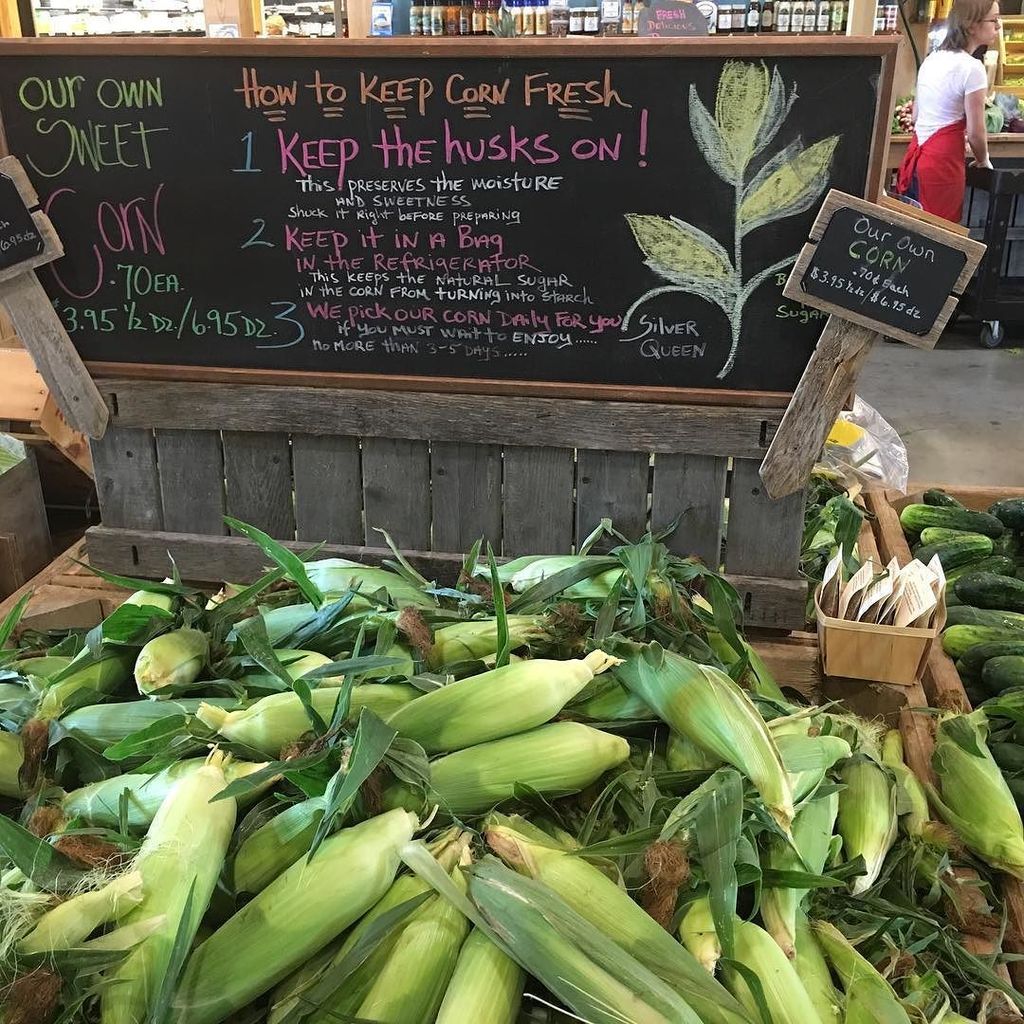 FRESH
Delicious
Our own
Sweet
Corn
.70 EA.
$3.95 1/2 DZ./6.95 DZ.
How to Keep Corn Fresh
1 Keep the husks on!
This preserves the moisture
and sweetness
Shuck it right before preparing
2 Keep it in a Bag
in the Refrigerator
This keeps the natural sugar
in the corn from turning into starch
3 We pick our corn daily for you
if you must wait to enjoy......
no more than 3-5 days.....
Silver
Queen
Sugar
6.95 dz
Our Own
Corn
.70¢ Each
$3.95 1/2 dz/$6.95 dz